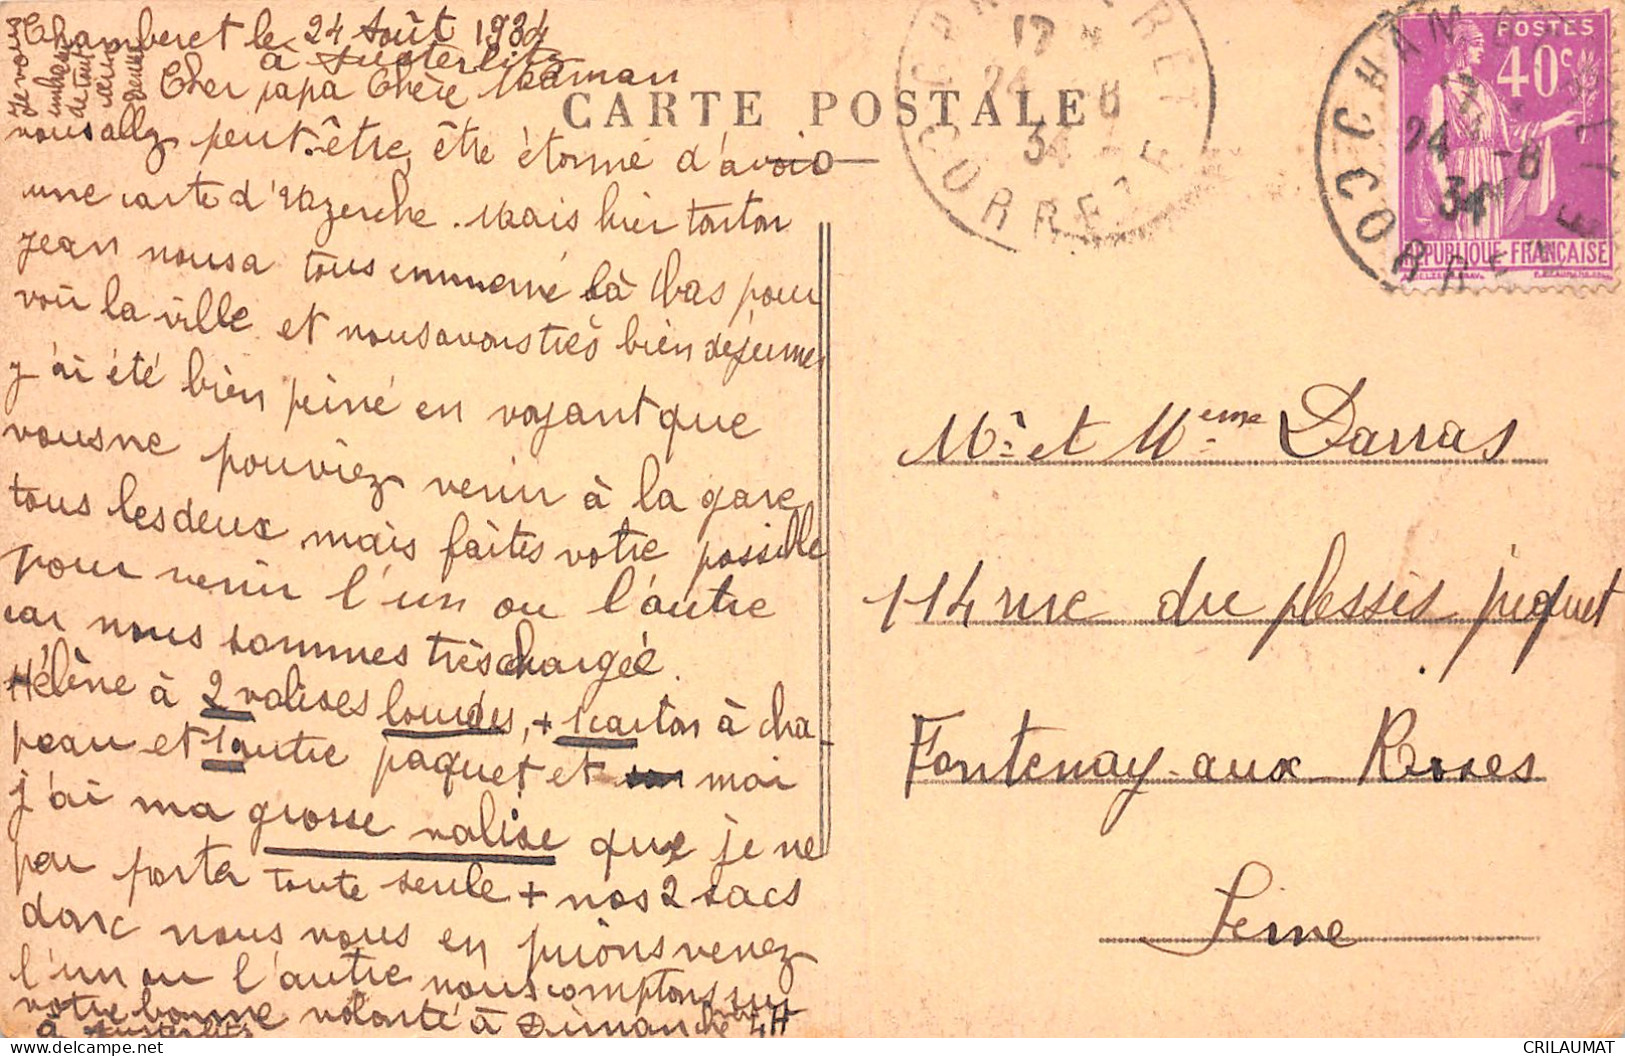 Chamberet le 24 Août 1934
à Austerlitz
Cher papa Chère Maman
vous allez peut-être, être étonné d'avoir
une carte d'Uzerche. Mais hier tonton
Jean nous a tous emmené là bas pour
voir la ville et nous avons très bien déjeuner
j'ai été bien peiné en voyant que
vous ne pouviez venir à la gare
tous les deux mais faites votre possible
pour venir l'un ou l'autre
car nous sommes très chargée.
Hélène à 2 valises lourdes, + 1 carton à cha
peau et 1 autre paquet et moi
j'ai ma grosse valise que je ne
peu porter toute seule + nos 2 sacs
donc nous vous en prions venez
l'un ou l'autre nous comptons sur
votre bonne volonté à Dimanche 4H
à Austerlitz
Je vous
embrasse
de tout
cœur
CARTE POSTALE
CHAMBERET
17
24 -8
34
CORREZE
POSTES
40c
REPUBLIQUE-FRANÇAISE
CHAMBERET
17
24 -8
34
CORREZE
Mr et Meme Darras
114 rue du plessis piquet
Fontenay-aux Roses
Seine
CRILAUMAT